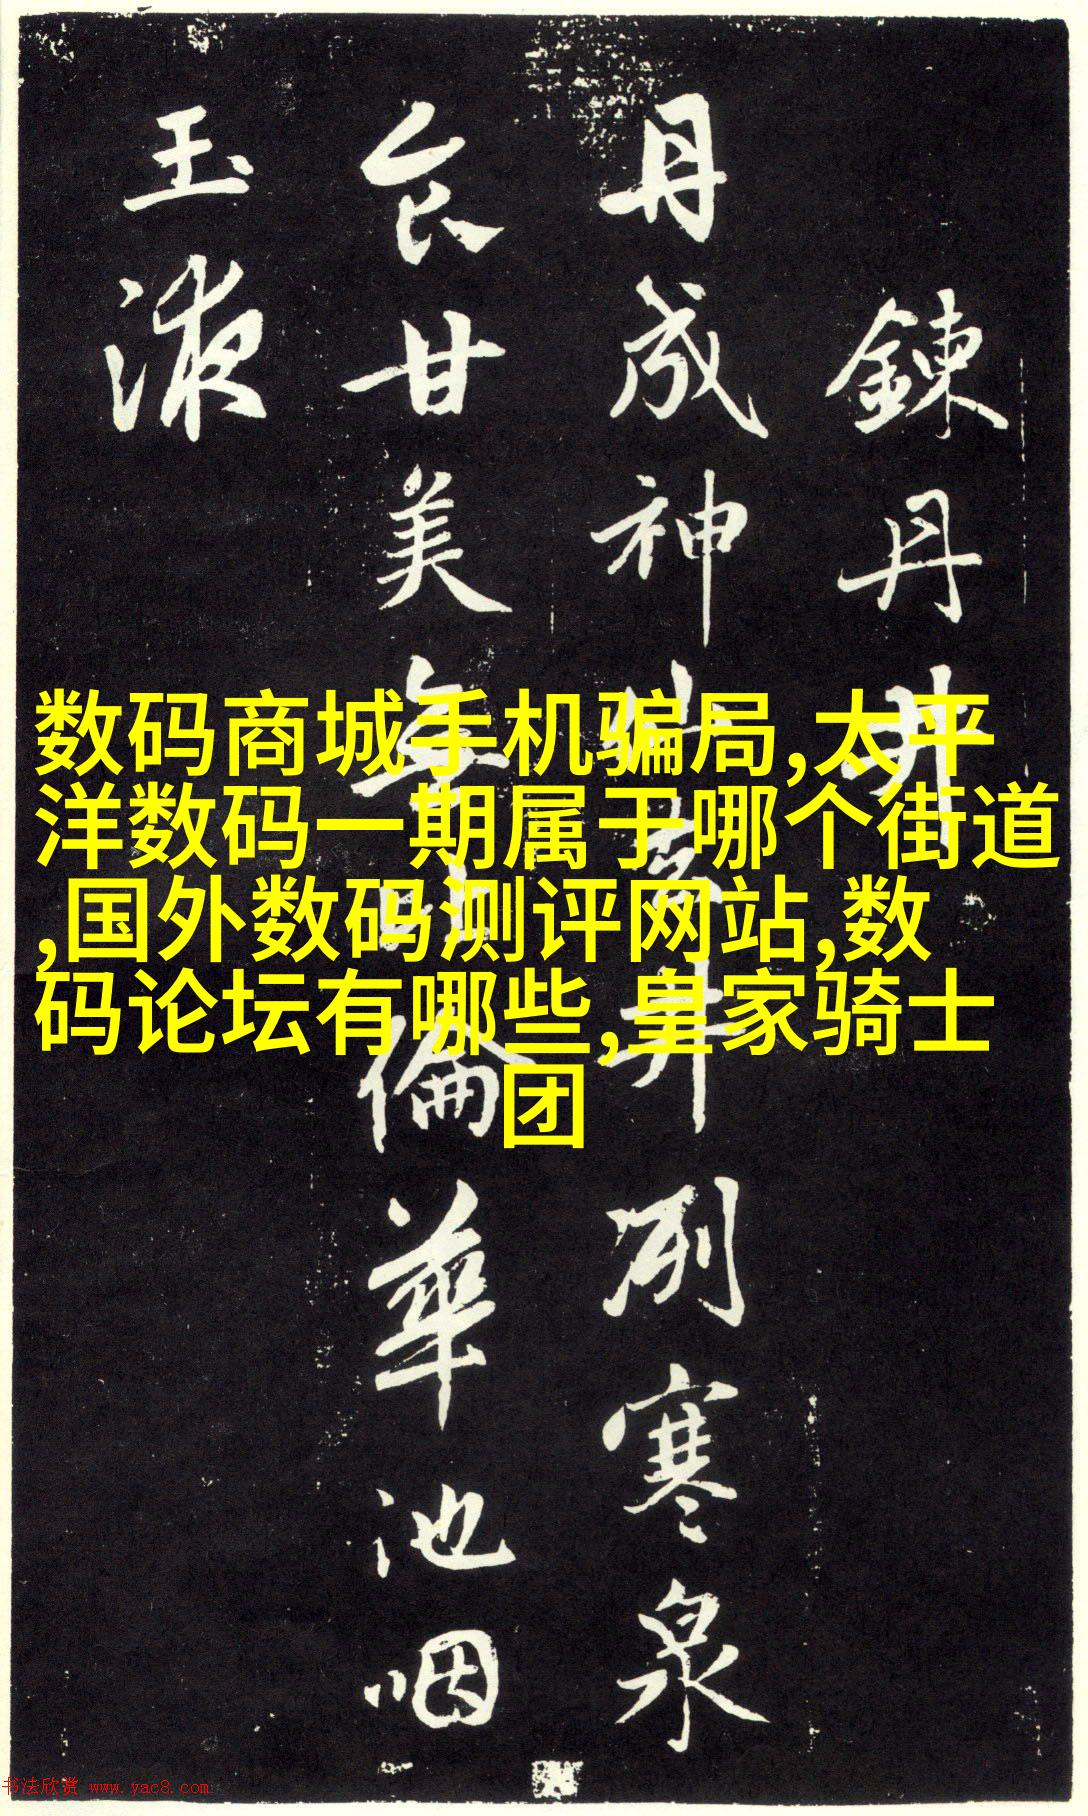 鍊丹井
丹成神仙井冽寒泉
食甘美無倫華池咽
玉液
数码商城手机骗局,太平
洋数码一期属于哪个街道
,国外数码测评网站,数
码论坛有哪些,皇家骑士
团
书法欣赏 www.yac8.com